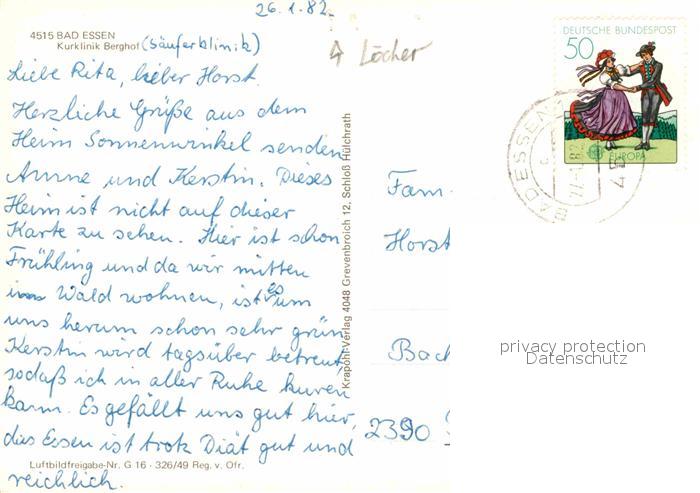 26.1.82.
4515 BAD ESSEN
Kurklinik Berghof (Säuferklinik)
4 Löcher
Liebe Rita, lieber Horst.
Herzliche Grüße aus dem
Heim Sonnenwinkel senden
Anne und Kerstin. Dieses
Heim ist nicht auf dieser
Karte zu sehen. Hier ist schon
Frühling und da wir mitten
im Wald wohnen, ist es um
uns herum schon sehr grün
Kerstin wird tagsüber betreut
sodaß ich in aller Ruhe kuren
kann. Es gefällt uns gut hier,
das Essen ist trotz Diät gut und
reichlich.
Luftbildfreigabe-Nr. G 16 · 326/49 Reg. v. Ofr.
Krapohl-Verlag 4048 Grevenbroich 12, Schloß Hülchrath
DEUTSCHE BUNDESPOST
50
EUROPA
BAD ESSEN
Fam.
Horst
Bach
2390
privacy protection
Datenschutz